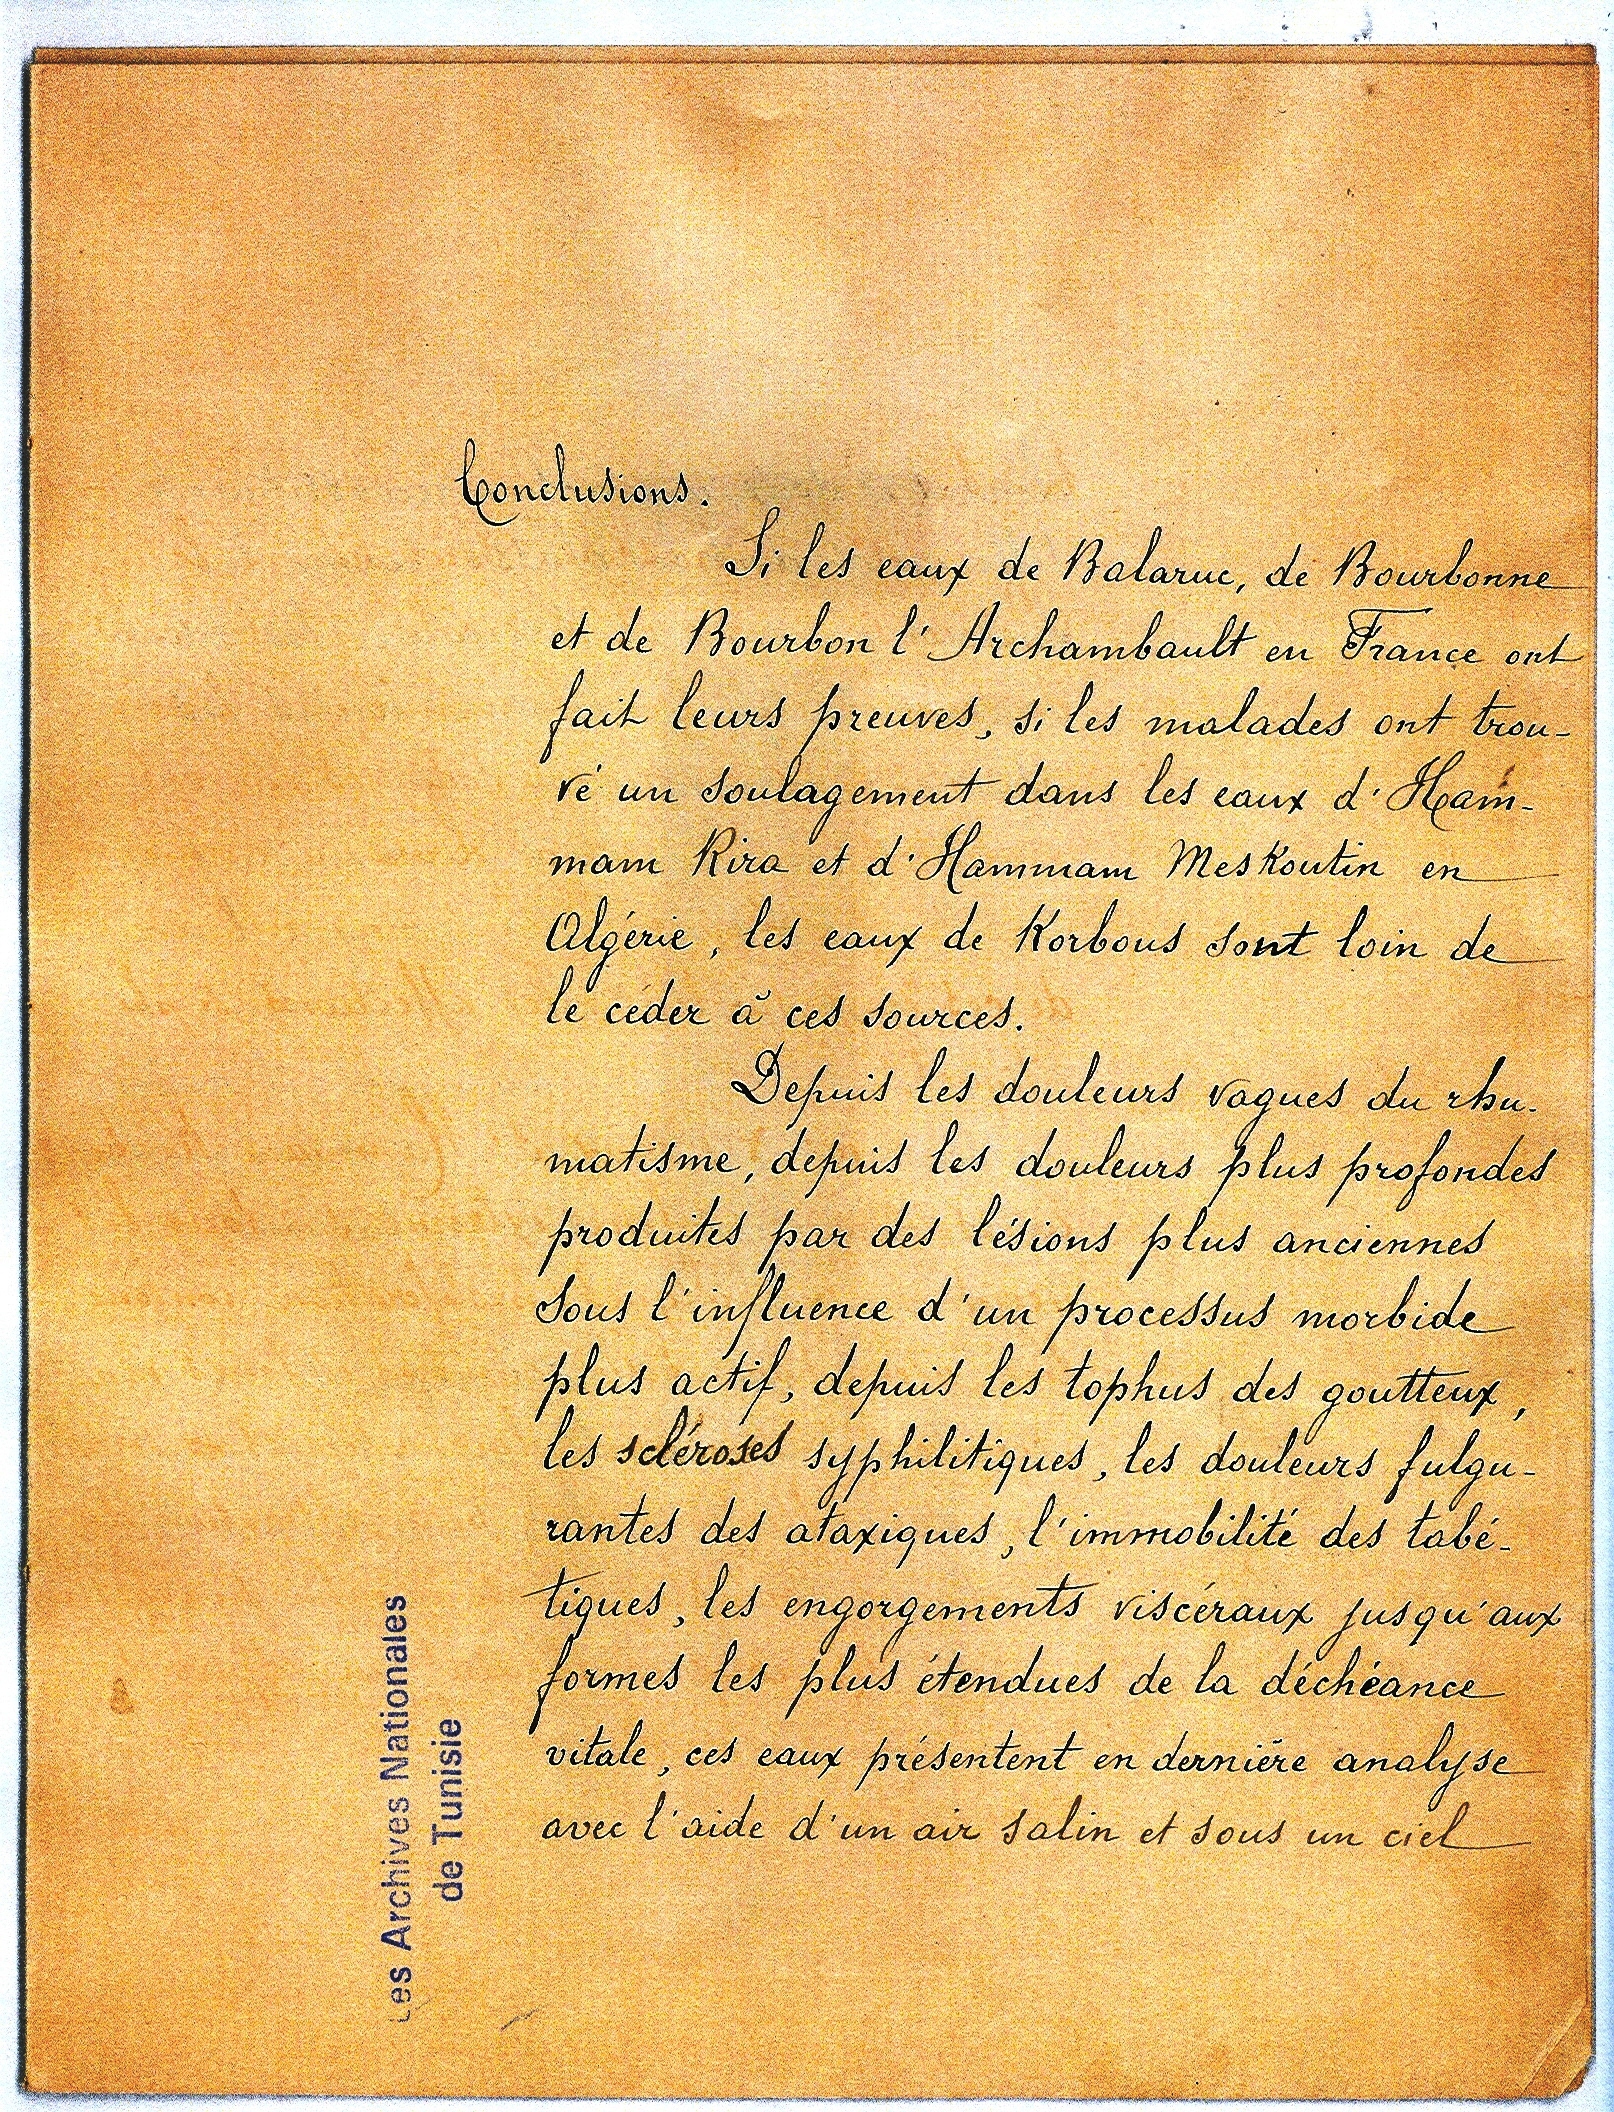 Conclusions.
Si les eaux de Balaruc, de Bourbonne
et de Bourbon l'Archambault en France ont
fait leurs preuves, si les malades ont trou-
vé un soulagement dans les eaux d'Ham-
mam Rira et d'Hammam Meskoutin en
Algérie, les eaux de Korbous sont loin de
le céder à ces sources.
Depuis les douleurs vagues du rhu-
matisme, depuis les douleurs plus profondes
produites par des lésions plus anciennes
sous l'influence d'un processus morbide
plus actif, depuis les tophus des goutteux,
les scléroses syphilitiques, les douleurs fulgu-
rantes des ataxiques, l'immobilité des tabé-
tiques, les engorgements viscéraux jusqu'aux
formes les plus étendues de la déchéance
vitale, ces eaux présentent en dernière analyse
avec l'aide d'un air salin et sous un ciel
Les Archives Nationales
de Tunisie